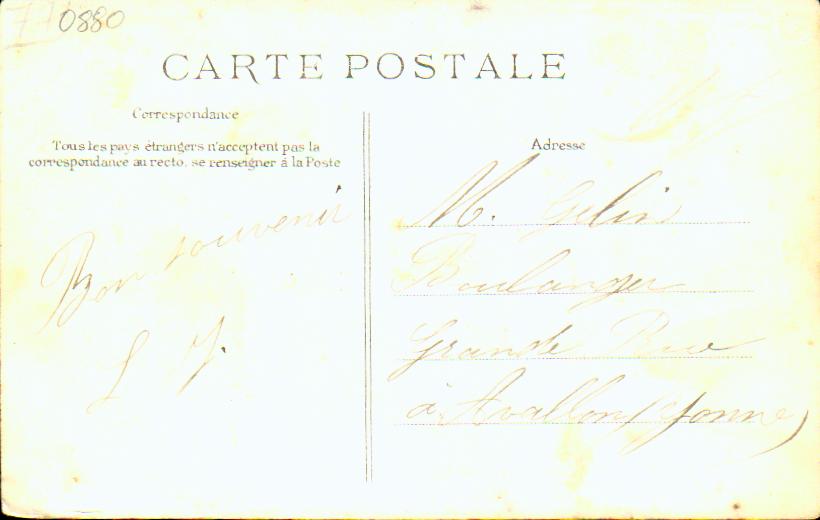 0880
CARTE POSTALE
Correspondance
Tous les pays étrangers n'acceptent pas la
correspondance au recto, se renseigner à la Poste
Adresse
Bon souvenir
L J.
M. Gelin
Boulanger
Grande Rue
à Avallon (Yonne)